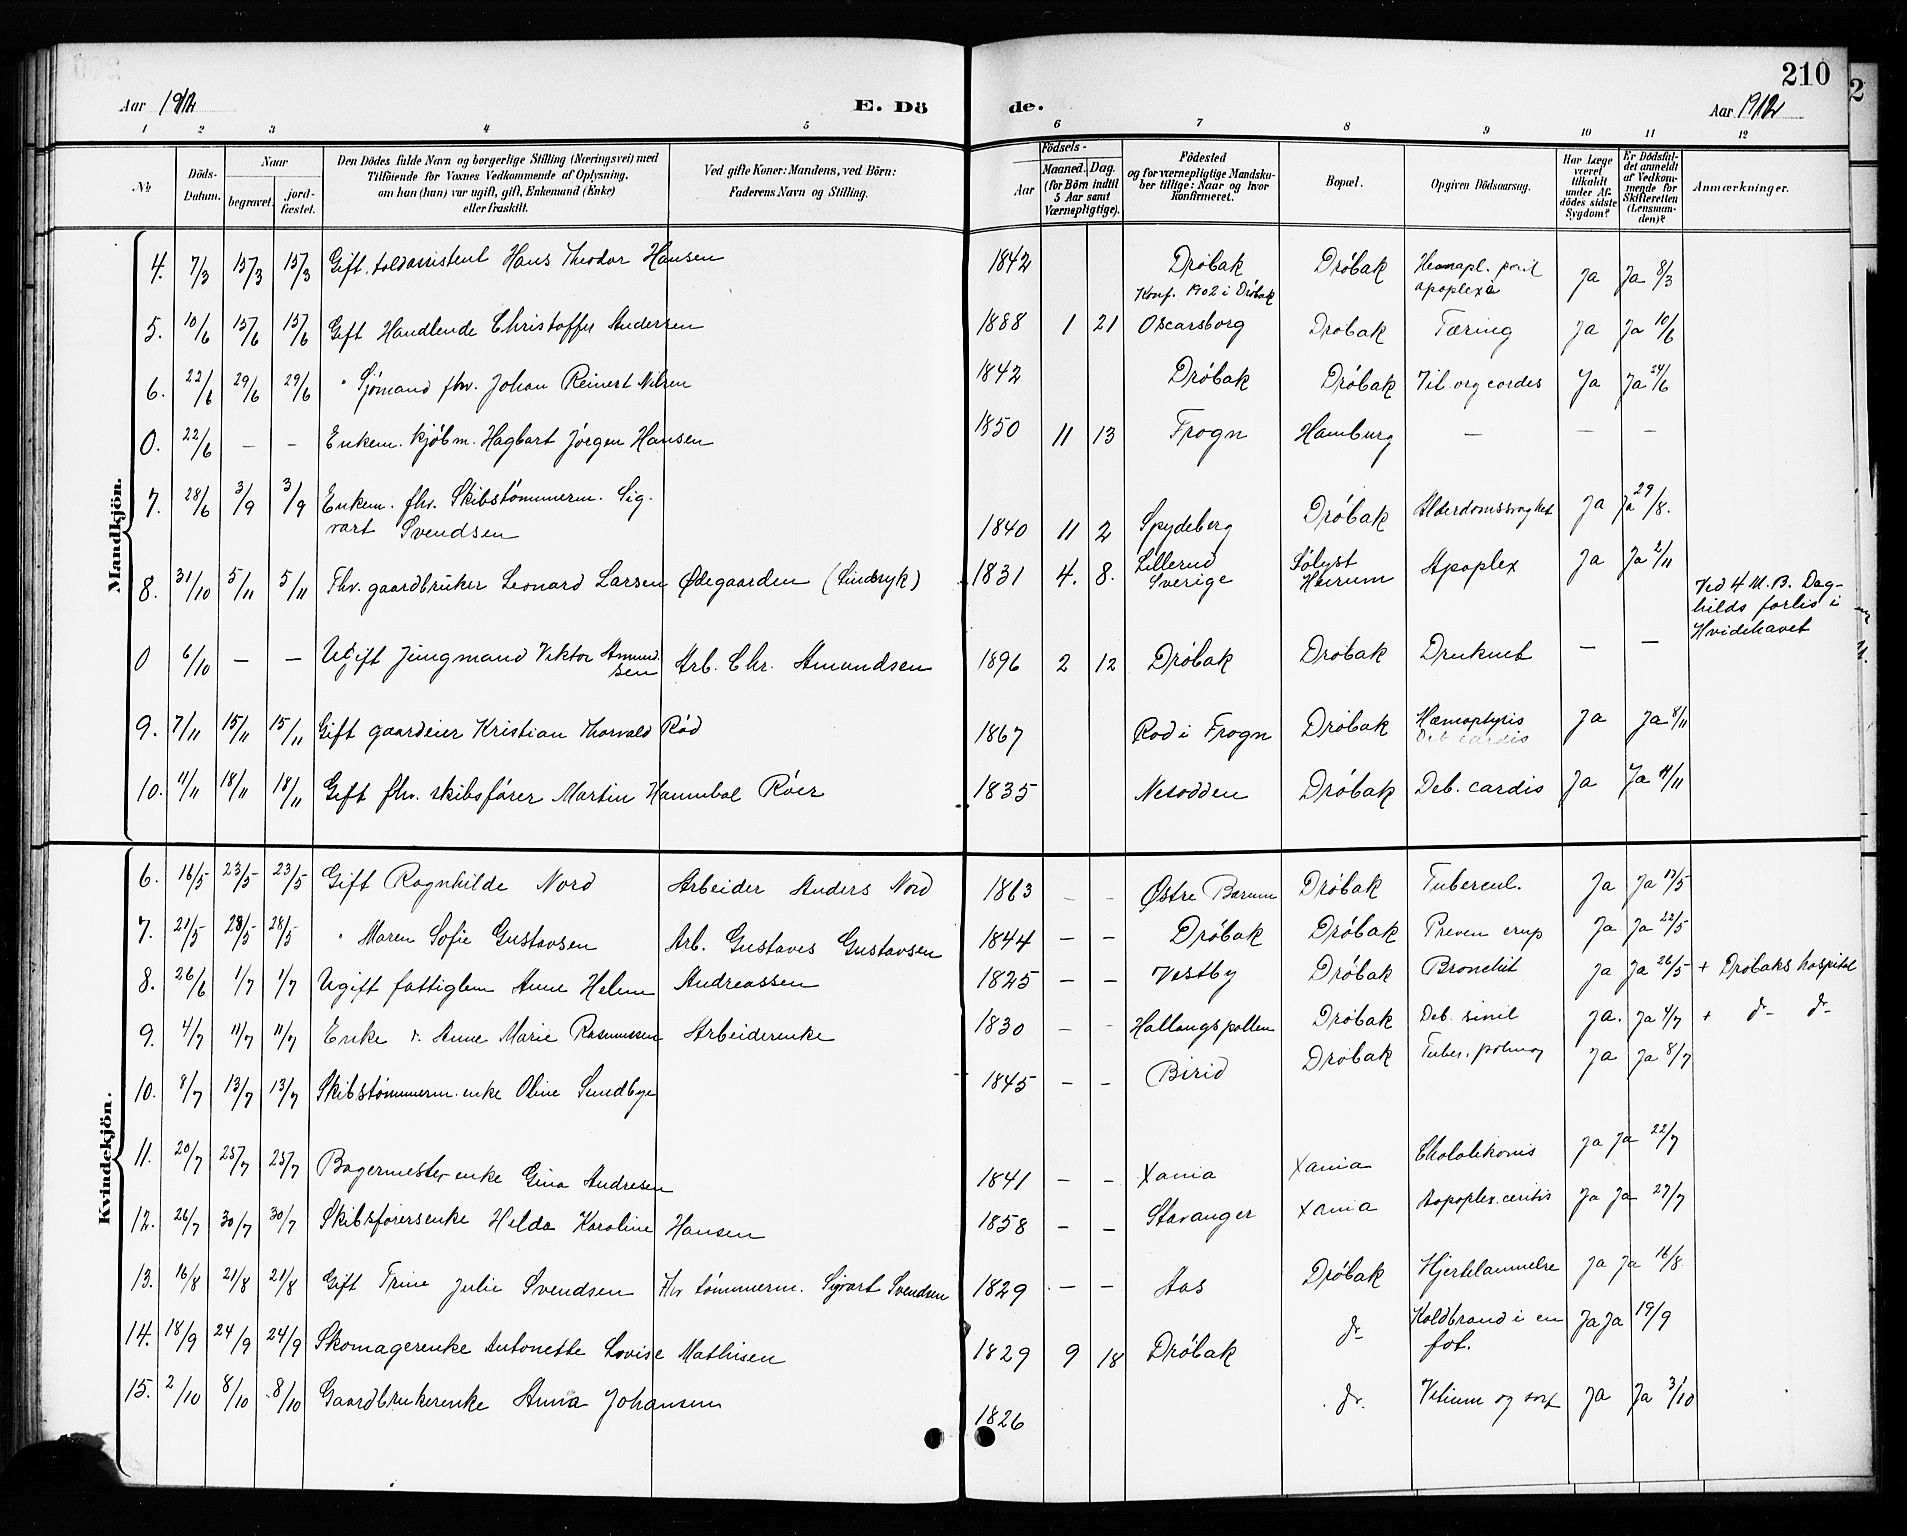 210
Aar 1912
E. Dö
de.
Aar 1912
1 2 3 4 5 6 7 8 9 10 11 12
No
Döds-Datum.
Naar
begravet.
jord-fæstet.
Den Dödes fulde Navn og borgerlige Stilling (Næringsvei) med
Tilföiende for Voxnes Vedkommende af Oplysning,
om han (hun) var ugift, gift, Enkemand (Enke)
eller fraskilt.
Ved gifte Koner: Mandens, ved Börn:
Faderens Navn og Stilling.
Födsels-
Aar
Maaned. Dag.
(for Börn indtil
5 Aar samt
Værnepligtige).
Födested
og for værnepligtige Mandsku-
ber tillige: Naar og hvor
Konfirmeret.
Bopæl.
Opgiven Dödsaarsag.
Har Læge
været
tilkaldt
under Af-
dödes sidste
Sygdom?
Er Dödsfal-
det anmeldt
af Vedkom-
mende for
Skifteretten
(Lensman-
den)?
Anmærkninger.
Mandkjön.
4. 7/3 15/3 15/3 Gift. toldassistent Hans Theodor Hansen 1842 Drøbak Drøbak apoplexi Ja Ja 8/3
Konf. 1902 i Drøbak
5. 10/6 15/6 15/6 Gift Handlende Christoffer Andersen 1888 1 21 Oscarsborg Drøbak Tæring Ja Ja 10/6
6. 22/6 29/6 29/6 " Sjømand fhv. Johan Reinert Nilsen 1842 Drøbak Drøbak Vit. org cordis Ja Ja 24/6
0. 22/6 — — Enkem. kjøbm. Hagbart Jørgen Hansen 1850 11 13 Frogn Hamburg — — —
7. 28/6 3/9 3/9 Enkem. fhv. Skibstømmerm. Sig-
vart Svendsen 1840 11 2 Spydeberg Drøbak Alderdomssvaghet Ja Ja 29/8.
8. 31/10 5/11 5/11 Fhv. gaardbruker Leonard Larsen Ødegaarden 1831 4. 8. Lillerud
Sverige Sølyst
Heirum Apoplex Ja Ja 2/11
0 6/10 — — Ugift Jungmand Viktor Amund-
sen Arb. Chr. Amundsen 1896 2 12 Drøbak Drøbak Druknet — — Ved 4 M. B. Dag-
hilds forlis i
Hvidehavet
9. 7/11 15/11 15/11 Gift gaardeier Kristian Thorvald Rød 1867 Rød i Frogn Drøbak Hæmoptysis
Deb cardis Ja Ja 8/11
10. 11/11 18/11 18/11 Gift fhv. skibsfører Martin Hannibal Røer 1835 Nesodden Drøbak Deb. cardis Ja Ja 11/11
Kvindekjön.
6. 16/5 23/5 23/5 Gift Ragnhilde Nord Arbeider Anders Nord 1863 - - Østre Bærum Drøbak Tubercul. Ja Ja 17/5
7. 21/5 28/5 28/5 " Maren Sofie Gustavsen Arb. Gustaves Gustavsen 1844 — — Drøbak Drøbak Ja Ja 22/5
8. 26/6 1/7 1/7 Ugift fattiglem Anne Helen Andreassen 1825 — — Vestby Drøbak Bronchit Ja Ja 26/5 + Drøbaks hospital
9. 4/7 11/7 11/7 Enke Anne Marie Rasmussen Arbeiderenke 1830 - - Hallangspollen Drøbak Deb. sinil Ja. Ja 4/7 + do do
10. 8/7 13/7 13/7 Skibstømmerm. enke Oline Sundbye 1845 — — Birid Drøbak Tuber. pulmon Ja Ja 8/7
11. 20/7 25/7 25/7 Bagermester enke Gina Andresen 1841 — — Xania Xania Ja Ja 22/7
12. 26/7 30/7 30/7 Skibsførersenke Helda Karoline Hansen 1858 — — Stavanger Xania Ja Ja 27/7
13. 16/8 21/8 21/8 Gift Trine Julie Svendsen Fhv tømmerm. Sigvart Svendsen 1829 — — Aas Drøbak Hjertelammelse Ja Ja 16/8
14. 18/9 24/9 24/9 Skomagerenke Antonette Lovise Mathisen 1829 9 18 Drøbak do Koldbrand i en
fot. Ja Ja 19/9
15. 2/10 8/10 8/10 Gaardbrukerenke Anna Johansen 1826 do. Ja Ja 3/10